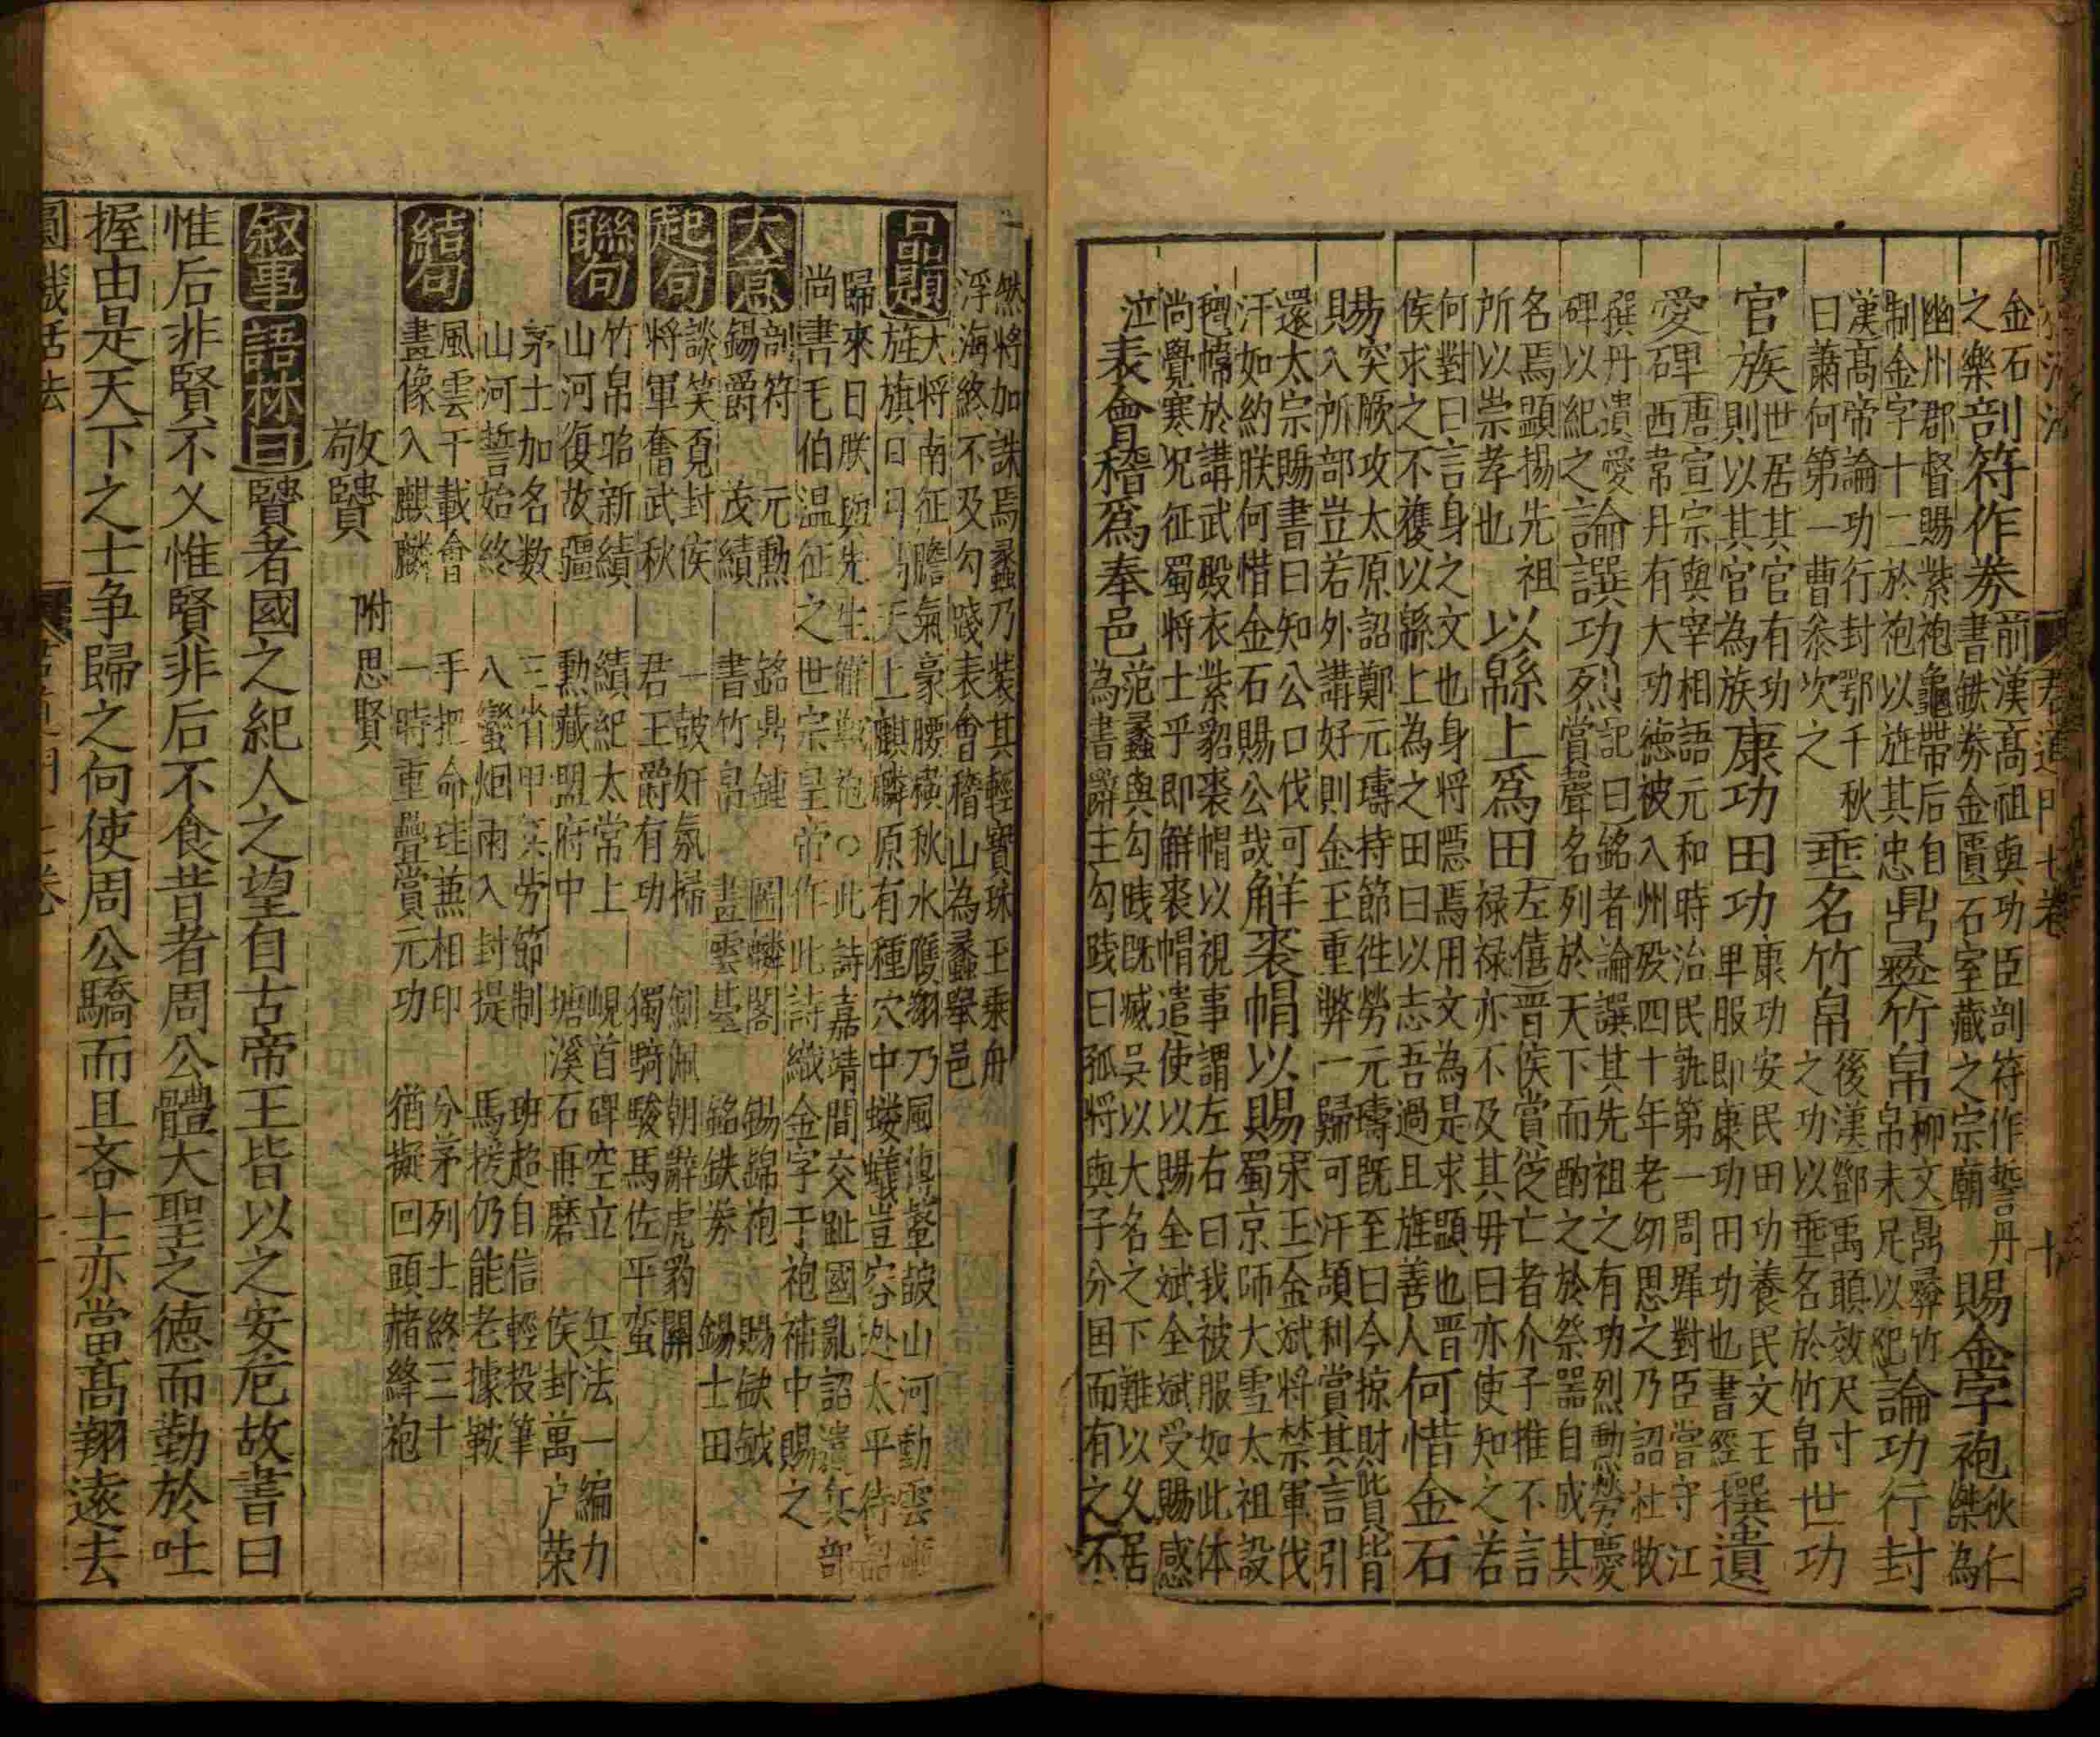 金石之樂剖符作券前漢髙祖與功臣剖符作誓丹書鉄券金匱石室藏之宗廟賜金字袍狄仁傑為
幽州郡督賜紫袍龜帶后自制金字十二於袍以旌其忠鼎彛竹帛柳文鼎彛竹帛未足以紀論功行封
漢髙帝論功行封鄂千秋曰蕭何第一曹叅次之垂名竹帛後漢鄧禹頋效尺寸之功以垂名於竹帛世功
官族世居其官有功則以其官為族康功田功康功安民田功養民文王卑服即康功田功也書經撰遺
愛碑唐宣宗與宰相語元和時治民孰第一周墀對臣嘗守江西韋丹有大功德被入州殁四十年老幼思之乃詔杜牧
撰丹遺愛碑以紀之論譔功烈記曰銘者論譔其先祖之有功烈勲勞慶賞聲名列於天下而酌之於祭器自成其
名焉顯揚先祖所以崇孝也以緜上為田左僖晋侯賞從亡者介子推不言禄禄亦不及其毋曰亦使知之若
何對曰言身之文也身將隱焉用文為是求顯也晋侯求之不獲以緜上為之田曰以志吾過且旌善人何惜金石
賜突厥攻太原詔鄭元璹持節徃勞元璹既至曰今掠財貲皆入所部豈若外講好則金王重弊一歸可汗頡利賞其言引
還太宗賜書曰知公口伐可汗如約朕何惜金石賜公哉觧裘帽以賜宋王金斌將禁軍伐蜀京師大雪太祖設
氊幃於講武殿衣紫貂裘帽以視事謂左右曰我被服如此体尚覺寒况征蜀將士乎即觧裘帽遣使以賜全斌全斌受賜感
泣表會稽爲奉邑范蠡與勾踐既滅吳以大名之下難以久居為書辭主勾踐曰孤將與子分囯而有之不
然將加誅焉蠡乃裝其輕寶珠王乘舟浮海終不及勾踐表會稽山為蠡舉邑
品題大將南征膽氣豪腰横秋水鴈翎乃風鼙皷山河動雲旌旗日月天上麒麟原有種穴中蝼蟻豈容迯太平待詔
歸來日朕與先生觧戰袍○此詩嘉靖間交趾國亂詔遣兵部尚書毛伯温征之世宗皇帝作此詩織金字于袍補中賜之
大意 剖符錫爵 元勲茂績 銘鼎鍾書竹帛 圖麟閣畫雲臺 錫錦袍銘鉄券 賜鈇鉞錫士田
起句 談笑覔封侯將軍奮武秋 一皷奸氛掃君王爵有功 劍佩朝辭虎豹關獨騎駿馬佐平蛮
聯句 竹帛昭新績山河復故疆 績紀太常上勲藏盟府中 峴首碑空立塘溪石再磨 兵法一編力侯封萬户荣
茅士加名数山河誓始終 三省甲兵劳節制八蠻烟雨入封提 班超自信輕投筆馬援仍能老據鞍
結句 風雲千載會畫像入麒麟 手把命珪兼相印一時重疊賞元功 分茅列士終三十猶擬回頭赭絳袍
敬賢 附思賢
叙事 語林曰賢者國之紀人之望自古帝王皆以之安危故書曰
惟后非賢不乂惟賢非后不食昔者周公體大聖之德而勤於吐
握由是天下之士争歸之向使周公驕而且吝士亦當髙翔遠去